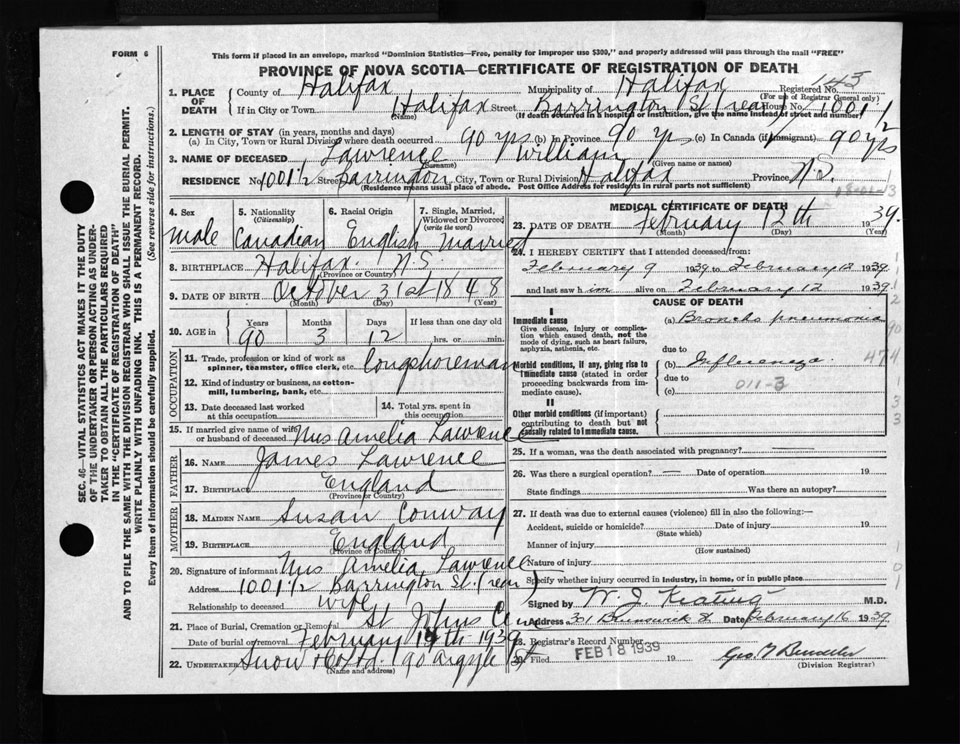 FORM 6
This form if placed in an envelope, marked "Dominion Statistics—Free, penalty for improper use $300," and properly addressed will pass through the mail "FREE"
PROVINCE OF NOVA SCOTIA—CERTIFICATE OF REGISTRATION OF DEATH
SEC. 46—VITAL STATISTICS ACT MAKES IT THE DUTY
OF THE UNDERTAKER OR PERSON ACTING AS UNDER-
TAKER TO OBTAIN ALL THE PARTICULARS REQUIRED
IN THE "CERTIFICATE OF REGISTRATION OF DEATH"
AND TO FILE THE SAME WITH THE DIVISION REGISTRAR WHO SHALL ISSUE THE BURIAL PERMIT.
WRITE PLAINLY WITH UNFADING INK. THIS IS A PERMANENT RECORD.
Every item of information should be carefully supplied. (See reverse side for instructions.)
1. PLACE OF DEATH County of Halifax Municipality of Halifax Registered No. 143
(For use of Registrar General only)
If in City or Town Halifax Street Barrington St (rear) House No. 1001 1/2
(Name) (If death occurred in a hospital or institution, give the name instead of street and number)
2. LENGTH OF STAY (in years, months and days)
(a) In City, Town or Rural Division where death occurred 90 yrs (b) In Province 90 yrs (c) In Canada (if immigrant) 90 yrs
3. NAME OF DECEASED Lawrence William
(Surname) (Given name or names)
RESIDENCE No. 1001 1/2 Street Barrington City, Town or Rural Division Halifax Province N.S.
(Residence means usual place of abode. Post Office Address for residents in rural parts not sufficient)
4. Sex 5. Nationality (Citizenship) 6. Racial Origin 7. Single, Married, Widowed or Divorced (write the word)
Male Canadian English Married
8. BIRTHPLACE Halifax N.S.
(Province or Country)
9. DATE OF BIRTH October 31st 1848
(Month) (Day) (Year)
10. AGE in Years Months Days If less than one day
90 3 12 hrs. or min.
OCCUPATION
11. Trade, profession or kind of work as spinner, teamster, office clerk, etc. Longshoreman
12. Kind of industry or business, as cotton-mill, lumbering, bank, etc.
13. Date deceased last worked at this occupation
14. Total yrs. spent in this occupation
15. If married give name of wife or husband of deceased Mrs Amelia Lawrence
FATHER
16. NAME James Lawrence
17. BIRTHPLACE England
(Province or Country)
MOTHER
18. MAIDEN NAME Susan Conway
19. BIRTHPLACE England
(Province or Country)
20. Signature of informant Mrs Amelia Lawrence
Address 1001 1/2 Barrington St. (rear)
Relationship to deceased wife
21. Place of Burial, Cremation or Removal St Johns Cem
Date of burial or removal February 1939
22. UNDERTAKER Snow & Co Ltd. 90 Argyle St
(Name and address)
MEDICAL CERTIFICATE OF DEATH
23. DATE OF DEATH February 12th 1939.
(Month) (Day) (Year)
24. I HEREBY CERTIFY that I attended deceased from:
February 9 1939 to February 12 1939
and last saw him alive on February 12 1939.
CAUSE OF DEATH
I
Immediate cause (a) Broncho pneumonia
Give disease, injury or complication which caused death, not the mode of dying, such as heart failure, asphyxia, asthenia, etc.
due to
Morbid conditions, if any, giving rise to immediate cause (stated in order proceeding backwards from immediate cause). (b) Influenza
due to
(c) 011-3
474
II
Other morbid conditions (if important) contributing to death but not causally related to immediate cause.
25. If a woman, was the death associated with pregnancy?
26. Was there a surgical operation? — Date of operation 19
State findings Was there an autopsy?
27. If death was due to external causes (violence) fill in also the following:—
Accident, suicide or homicide? Date of injury 19
(State which)
Manner of injury
(How sustained)
Nature of injury
Specify whether injury occurred in industry, in home, or in public place
Signed by W. J. Keating M.D.
Address 301 Brunswick St Date February 16 1939
28. Registrar's Record Number
Filed FEB 18 1939 19
(Division Registrar)